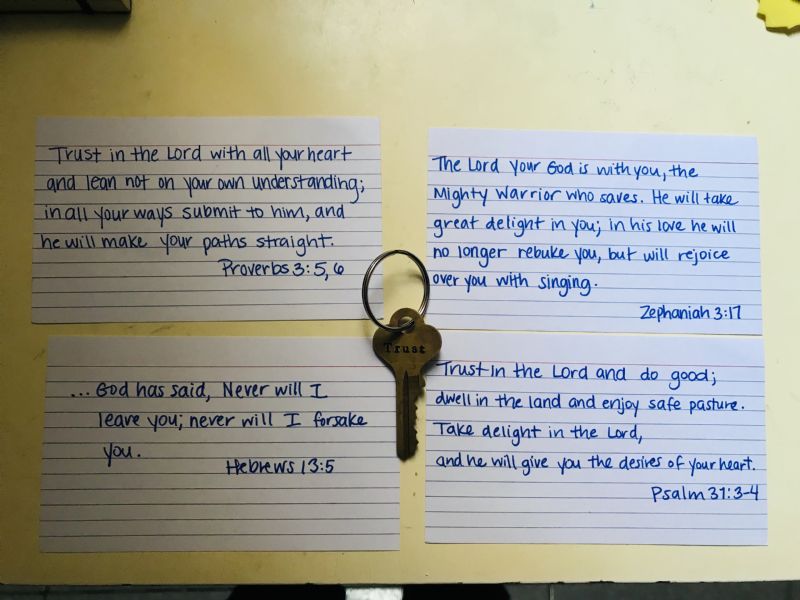 Trust in the Lord with all your heart
and lean not on your own understanding;
in all your ways submit to him, and
he will make your paths straight.
Proverbs 3:5,6
The Lord your God is with you, the
Mighty Warrior who saves. He will take
great delight in you; in his love he will
no longer rebuke you, but will rejoice
over you with singing.
Zephaniah 3:17
Trust
...God has said, Never will I
leave you; never will I forsake
you.
Hebrews 13:5
Trust in the Lord and do good;
dwell in the land and enjoy safe pasture.
Take delight in the Lord,
and he will give you the desires of your heart.
Psalm 37:3-4